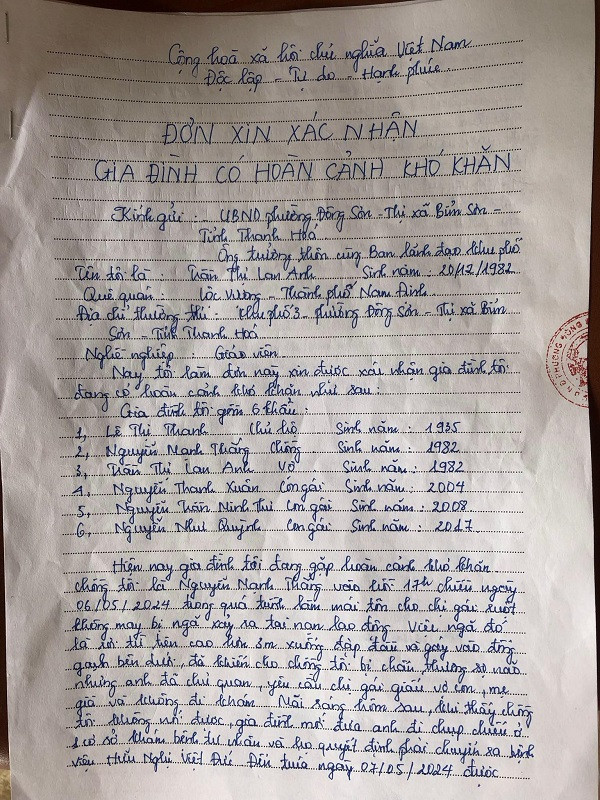 Cộng hoà xã hội chủ nghĩa Việt Nam
Độc lập - Tự do - Hạnh phúc
ĐƠN XIN XÁC NHẬN
GIA ĐÌNH CÓ HOÀN CẢNH KHÓ KHĂN
Kính gửi : - UBND phường Đông Sơn - Thị xã Bỉm Sơn -
Tỉnh Thanh Hoá
Ông trưởng thôn cùng Ban lãnh đạo khu phố
Tên tôi là : Trần Thị Lan Anh Sinh năm : 20/12/1982
Quê quán : Lộc Vượng - Thành phố Nam Định
Địa chỉ thường trú : Khu phố 3 - phường Đông Sơn - Thị xã Bỉm
Sơn - Tỉnh Thanh Hoá
Nghề nghiệp : Giáo viên
Nay tôi làm đơn này xin được xác nhận gia đình tôi
đang có hoàn cảnh khó khăn như sau :
Gia đình tôi gồm 6 khẩu :
1, Lê Thị Thanh Chủ hộ Sinh năm : 1935
2, Nguyễn Mạnh Thắng Chồng Sinh năm : 1982
3, Trần Thị Lan Anh Vợ Sinh năm : 1982
4, Nguyễn Thanh Xuân Con gái Sinh năm : 2004
5, Nguyễn Trần Ninh Thi Con gái Sinh năm : 2008
6, Nguyễn Như Quỳnh Con gái Sinh năm : 2017
Hiện nay gia đình tôi đang gặp hoàn cảnh khó khăn
chồng tôi là Nguyễn Mạnh Thắng vào hồi 17h chiều ngày
06/05/2024 trong quá trình làm mái tôn cho chị gái ruột
không may bị ngã xảy ra tai nạn lao động. Việc ngã đó
là rơi từ trên cao hơn 3m xuống đập đầu và gáy vào đống
gạch bên dưới, đã khiến cho chồng tôi bị chấn thương sọ não
nhưng anh đã chủ quan, yêu cầu chị gái giấu vợ con, mẹ
già và không đi khám. Mãi sang hôm sau, khi thấy chồng
tôi không nói được, gia đình mới đưa anh đi chụp chiếu ở
cơ sở khám bệnh tư nhân và họ quyết định phải chuyển ra bệnh
viện Hữu Nghị Việt Đức. Đến trưa ngày 07/05/2024 được